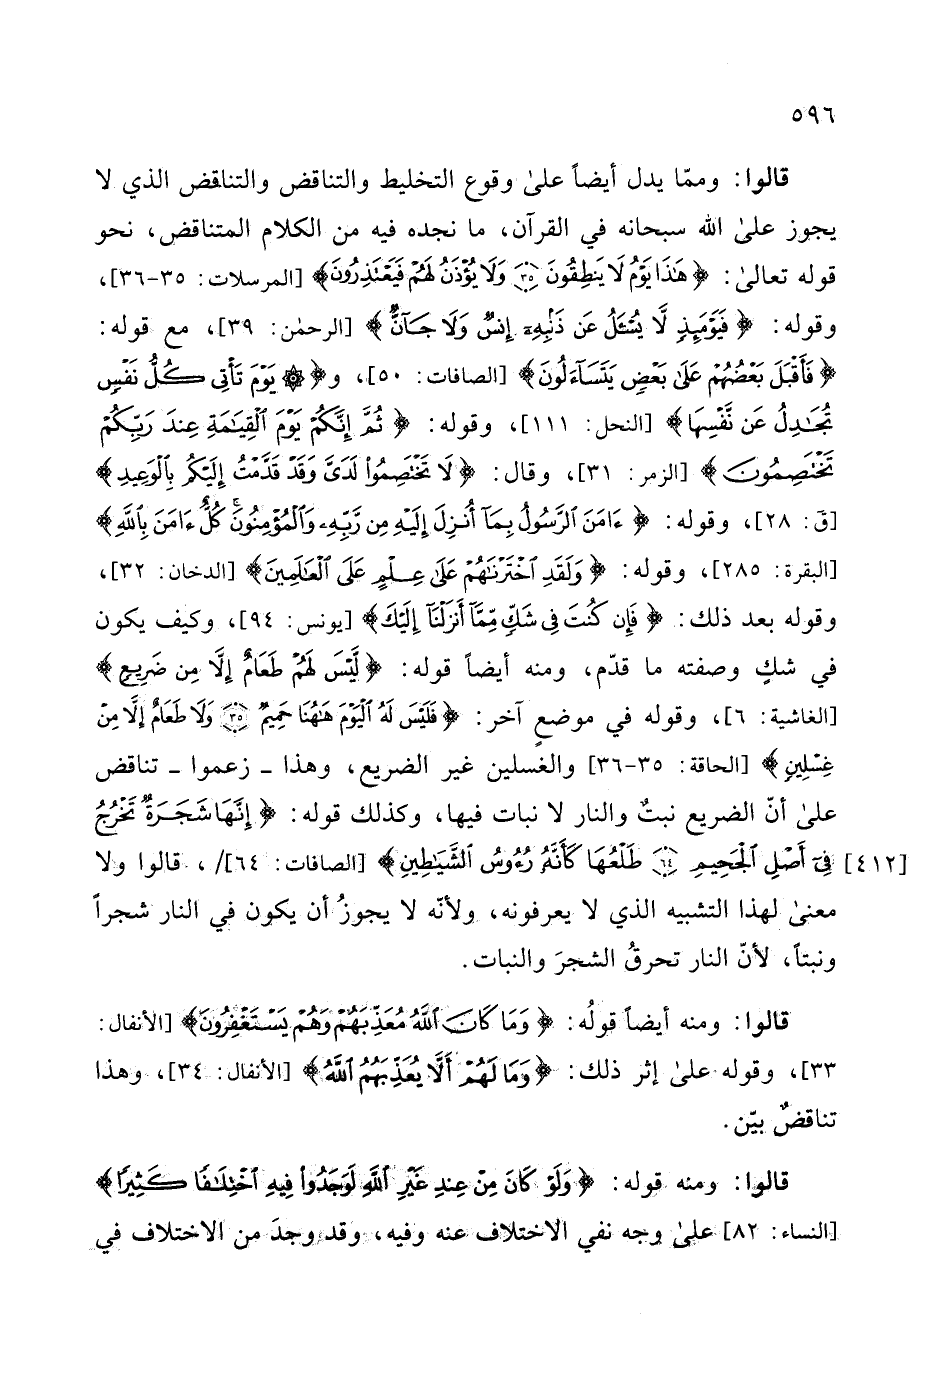 ٥٩٦
قالوا: وممّا يدل أيضاً علىٰ وقوع التخليط والتناقض والتناقض الذي لا
يجوز علىٰ الله سبحانه في القرآن، ما نجده فيه من الكلام المتناقض، نحو
قوله تعالىٰ: ﴿هَٰذَا يَوْمُ لَا يَنطِقُونَ ﴿٣٥﴾ وَلَا يُؤْذَنُ لَهُمْ فَيَعْتَذِرُونَ﴾ [المرسلات: ٣٥-٣٦]،
وقوله: ﴿فَيَوْمَئِذٍ لَّا يُسْـَٔلُ عَن ذَنۢبِهِۦٓ إِنسٌ وَلَا جَآنٌّ﴾ [الرحمٰن: ٣٩]، مع قوله:
﴿فَأَقْبَلَ بَعْضُهُمْ عَلَىٰ بَعْضٍ يَتَسَآءَلُونَ﴾ [الصافات: ٥٠]، و﴿۞ يَوْمَ تَأْتِى كُلُّ نَفْسٍ
تُجَٰدِلُ عَن نَّفْسِهَا﴾ [النحل: ١١١]، وقوله: ﴿ثُمَّ إِنَّكُمْ يَوْمَ ٱلْقِيَٰمَةِ عِندَ رَبِّكُمْ
تَخْتَصِمُونَ﴾ [الزمر: ٣١]، وقال: ﴿لَا تَخْتَصِمُوا۟ لَدَىَّ وَقَدْ قَدَّمْتُ إِلَيْكُم بِٱلْوَعِيدِ﴾
[قَ: ٢٨]، وقوله: ﴿ءَامَنَ ٱلرَّسُولُ بِمَآ أُنزِلَ إِلَيْهِ مِن رَّبِّهِۦ وَٱلْمُؤْمِنُونَ ۚ كُلٌّ ءَامَنَ بِٱللَّهِ﴾
[البقرة: ٢٨٥]، وقوله: ﴿وَلَقَدِ ٱخْتَرْنَٰهُمْ عَلَىٰ عِلْمٍ عَلَى ٱلْعَٰلَمِينَ﴾ [الدخان: ٣٢]،
وقوله بعد ذلك: ﴿فَإِن كُنتَ فِى شَكٍّ مِّمَّآ أَنزَلْنَآ إِلَيْكَ﴾ [يونس: ٩٤]، وكيف يكون
في شكٍ وصفته ما قدّم، ومنه أيضاً قوله: ﴿لَّيْسَ لَهُمْ طَعَامٌ إِلَّا مِن ضَرِيعٍ﴾
[الغاشية: ٦]، وقوله في موضعٍ آخر: ﴿فَلَيْسَ لَهُ ٱلْيَوْمَ هَٰهُنَا حَمِيمٌ ﴿٣٥﴾ وَلَا طَعَامٌ إِلَّا مِنْ
غِسْلِينٍ﴾ [الحاقة: ٣٥-٣٦] والغسلين غير الضريع، وهذا ـ زعموا ـ تناقض
علىٰ أنّ الضريع نبتٌ والنار لا نبات فيها، وكذلك قوله: ﴿إِنَّهَا شَجَرَةٌ تَخْرُجُ
[٤١٢] فِىٓ أَصْلِ ٱلْجَحِيمِ ﴿٦٤﴾ طَلْعُهَا كَأَنَّهُۥ رُءُوسُ ٱلشَّيَٰطِينِ﴾ [الصافات: ٦٤]/، قالوا ولا
معنىٰ لهذا التشبيه الذي لا يعرفونه، ولأنّه لا يجوزُ أن يكون في النار شجراً
ونبتاً، لأنّ النار تحرقُ الشجرَ والنبات.
قالوا: ومنه أيضاً قولُه: ﴿وَمَا كَانَ ٱللَّهُ مُعَذِّبَهُمْ وَهُمْ يَسْتَغْفِرُونَ﴾ [الأنفال:
٣٣]، وقوله علىٰ إثر ذلك: ﴿وَمَا لَهُمْ أَلَّا يُعَذِّبَهُمُ ٱللَّهُ﴾ [الأنفال: ٣٤]، وهذا
تناقضٌ بيّن.
قالوا: ومنه قوله: ﴿وَلَوْ كَانَ مِنْ عِندِ غَيْرِ ٱللَّهِ لَوَجَدُوا۟ فِيهِ ٱخْتِلَٰفًا كَثِيرًا﴾
[النساء: ٨٢] علىٰ وجه نفي الاختلاف عنه وفيه، وقد وجدَ من الاختلاف في